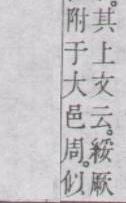 其上文云。綏厥
附于大邑周。似